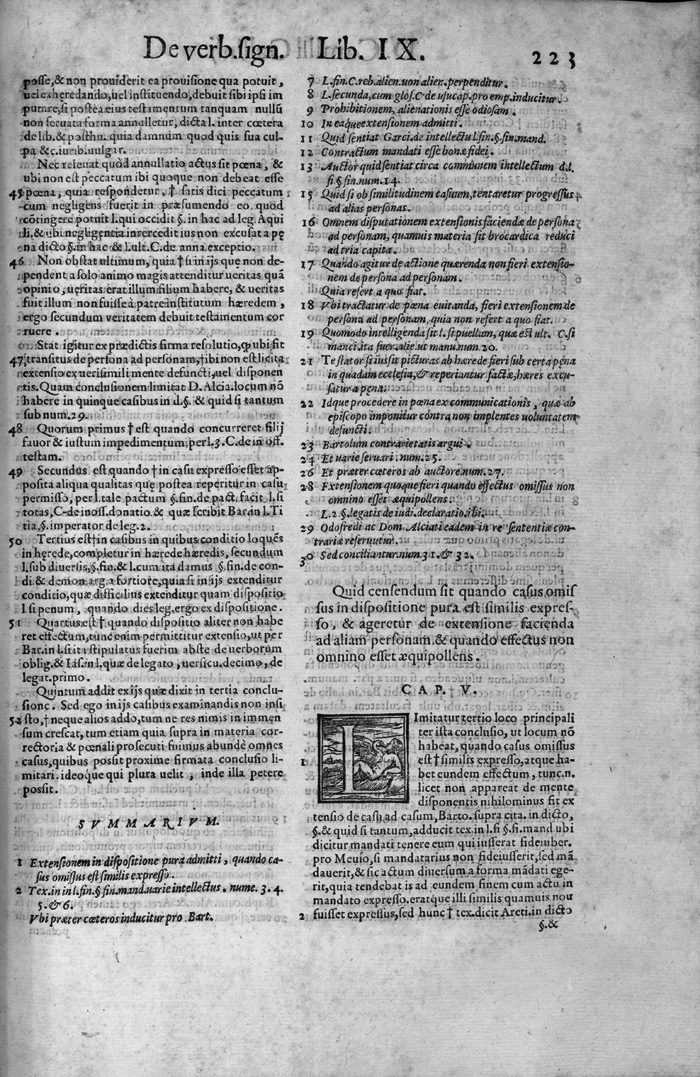 De verb.sign. Lib. IX. 223
posse,& non prouiderit ea prouisione qua potuit,
uel exheredando,uel instituendo,debuit sibi ipsi im
putare,si postea eius testamentum tanquam nullū
non seruata forma annulletur, dicta l. inter cœtera
de lib.& posthu. quia damnum quod quis sua cul-
pa &c.iurib.uulgar.
Nec releuat quòd annullatio actus sit pœna, &
ubi non est peccatum ibi quoque non debeat esse
45 pœna, quia respondetur, † satis dici peccatum
cum negligens fuerit in præsumendo eo quod
cōtingere potuit l.qui occidit §. in hac ad leg. Aqui
li,& ubi negligentia intercedit ius non excusat a pę
na dicto §.in hac & l.ult.C.de anna.exceptio.
46 Non obstat ultimum, quia † si in ijs que non de-
pendent a solo animo magis attenditur ueritas quā
opinio, ueritas erat illum filium habere, & ueritas
fuit illum non fuisse a patre institutum hæredem,
ergo secundum veritatem debuit testamentum cor
ruere.
Stat igitur ex prædictis firma resolutio,q ubi fit
47 transitus de persona ad personam,†ibi non est licita
extensio ex uerisimili mente defuncti,uel disponen
tis. Quam conclusionem limitat D. Alcia.locum nō
habere in quinque casibus in d.§. & quid si tantum
sub num.29.
48 Quorum primus † est quando concurreret filij
fauor & iustum impedimentum,per l.3.C.de in off.
testam.
49 Secundus est quando † in casu expresso esset ap-
posita aliqua qualitas quę postea reperitur in casu
permisso, per l.tale pactum §.fin.de pact.facit l.si
totas,C.de inoss.donatio.& quæ scribit Bar.in l.Ti
tia,§.imperator de leg.2.
50 Tertius est † in casibus in quibus conditio loquēs
in herede,completur in hærede hæredis, secundum
l.sub diuersis,§.fin.& l.cum ita damus §.fin.de con-
di.& demon.arg.a fortiore,quia si in ijs extenditur
conditio,quæ difficilius extenditur quam dispositio
l si penum, quando dies leg.ergo ex dispositione.
51 Quartus est † quando dispositio aliter non habe
ret effectum,tunc enim permittitur extensio,ut per
Bar.in l.si ita stipulatus fuerim abs te de uerborum
oblig.& Ias.in l.quæ de legato, uersicu.decimo, de
legat.primo.
Quintum addit ex ijs quæ dixit in tertia conclu-
sione. Sed ego in ijs casibus examinandis non insi
52 sto,† neque alios addo,tum ne res nimis in immen
sum crescat, tum etiam quia supra in materia cor-
rectoria & pœnali prosecuti fuimus abundè omnes
casus,quibus posit proxime firmata conclusio li-
mitari.ideoque qui plura uelit, inde illa petere
posit.
SVMMARIVM.
1 Extensionem in dispositione pura admitti, quando ca-
sus omissus est similis expresso.
2 Tex.in in l.fin.§ fin.mand.uarie intellectus, nume. 3. 4.
5. & 6.
Vbi præter cæteros inducitur pro Bart.
7 L.fin.C.reb.alien.non alien.perpenditur.
8 L.secunda,cum glos.C.de usucap.pro emp.inducitur.
9 Prohibitionem, alienationis esse odiosam.
10 In ea que extensionem admitti.
11 Quid sentiat Garci.de intellectu l.fin.§.fin.mand.
12 Contractum mandati esse bonæ fidei.
13 Auctor quid sentiat circa communem intellectum d.l.
fi §.fin.num.14.
15 Quid si ob similitudinem casuum,tentaretur progressus
ad alias personas.
16 Omnem disputationem extensionis faciendæ de persona
ad personam, quamuis materia sit brocardica reduci
ad tria capita.
17 Quando agitur de actione quærenda non fieri extensio-
nem de persona ad personam.
Quia refert a quo fiat.
18 Vbi tractatur de pœna euitanda, fieri extensionem de
persona ad personam, quia non refert a quo fiat.
19 Quomodo intelligenda sit l. si puellam, quæ est ult. C.si
manci.ita fuer.alie.ut manu.num.20.
21 Testator si iussit picturas ab hærede fieri sub certa pęna
in quadam ecclesia,& reperiantur factæ,hæres excu-
satur a pęna.
22 Idque procedere in pœna excommunicationis, quæ ab
episcopo imponitur contra non implentes uoluntatem
defuncti.
23 Bartolum contrarietatis argui.
24 Et uarie seruari . num.25.
26 Et præter cæteros ab auctore.num.27.
28 Extensionem quoque fieri quando effectus omissus non
omnino esset æquipollens.
L.2 §.legatis de iudi.declaratio.ibi.
29 Odofredi ac Dom. Alciati eadem in re sententiæ con-
trariæ referuntur.
30 Sed conciliantur.num.31.& 32.
Quid censendum sit quando casus omis
sus in dispositione pura est similis expres-
so, & ageretur de extensione facienda
ad aliam personam.& quando effectus non
omnino esset æquipollens.
CAP. V.
Imitatur tertio loco principali
ter ista conclusio, ut locum nō
habeat, quando casus omissus
1 est † similis expresso,atque ha-
bet eundem effectum, tunc.n.
licet non appareat de mente
disponentis nihilominus fit ex
tensio de casu ad casum, Barto. supra cita. in dicto,
§.& quid si tantum,adducit tex.in l.si §.si.mand ubi
dicitur mandati tenere eum qui iusserat fideiuber.
pro Meuio,si mandatarius non fideiusserit,sed mā
dauerit,& sic actum diuersum a forma mādati ege-
rit,quia tendebat is ad eundem finem cum actu in
mandato expresso.eratque illi similis quamuis nou
2 fuisset expressus,sed hunc † tex.dicit Areti.in dicto
§.&